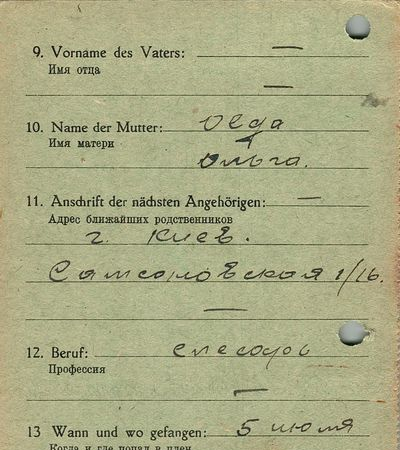 9. Vorname des Vaters: —
Имя отца
—
10. Name der Mutter: Olga
Имя матери
Ольга.
11. Anschrift der nächsten Angehörigen: —
Адрес ближайших родственников
г. Киев.
1/16.
—
12. Beruf:
Профессия
—
13 Wann und wo gefangen: 5 июля
Когда и где попал в плен